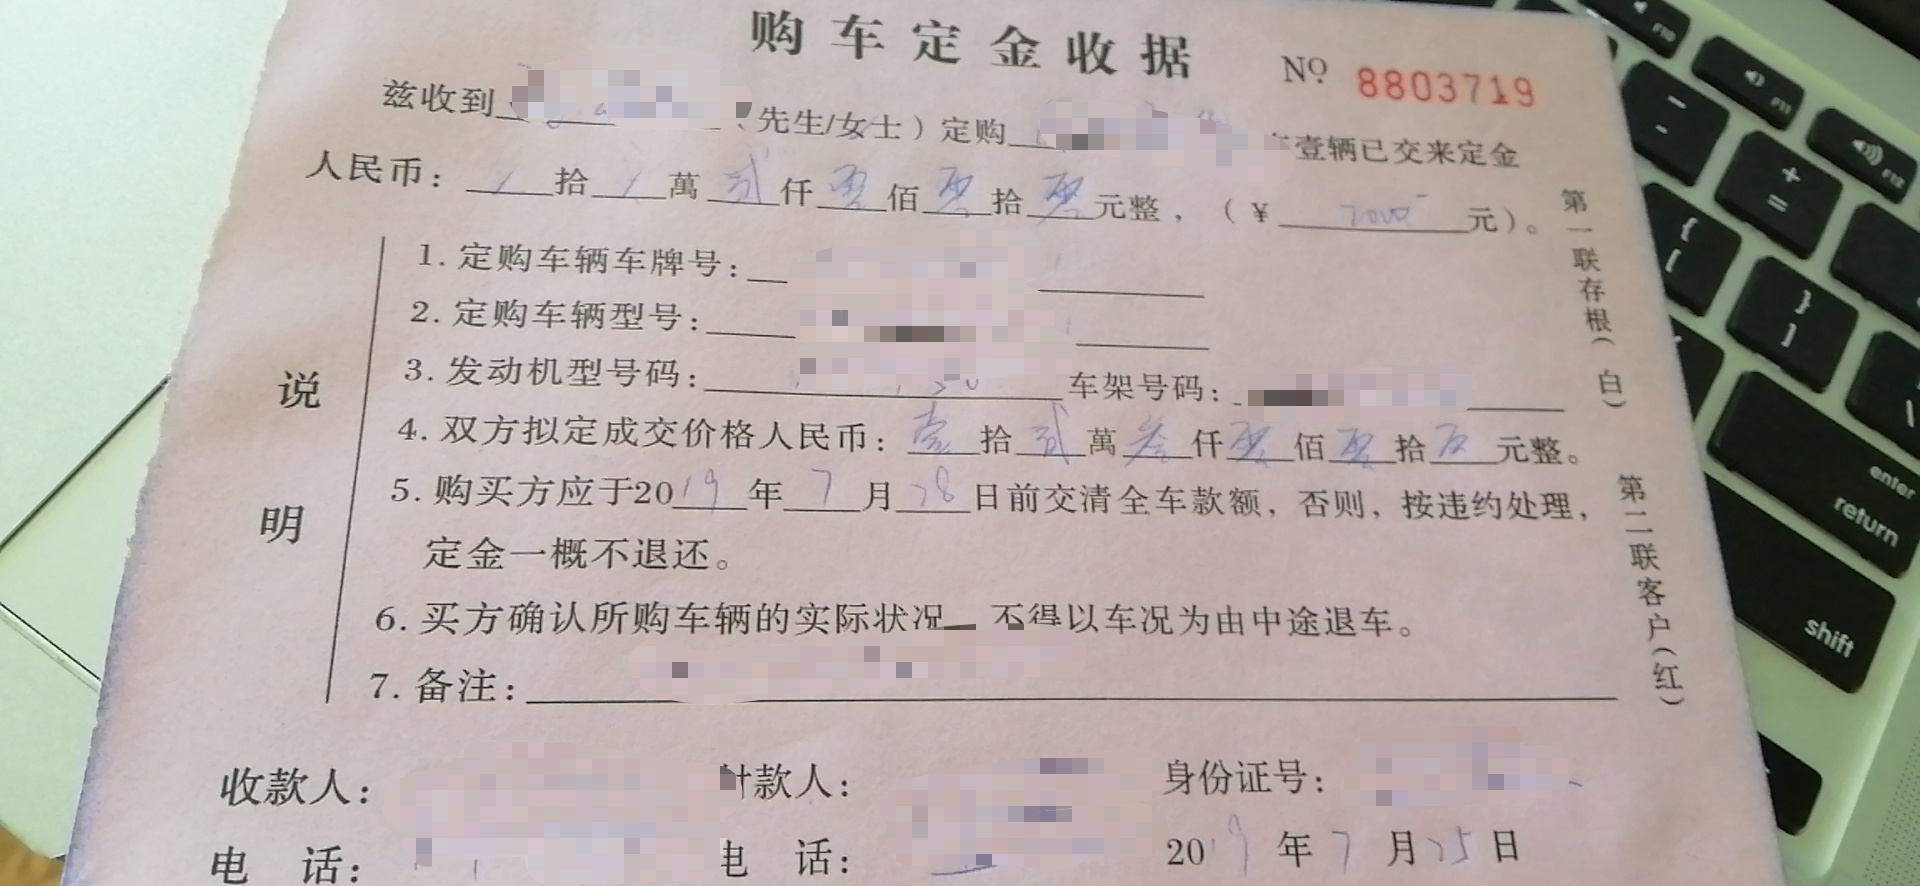 购车定金收据 № 8803719
兹收到 (先生/女士）定购 壹辆已交来定金
人民币： / 拾 / 萬 贰 仟 零 佰 零 拾 零 元整，（￥ 2000 元）。
说明
1. 定购车辆车牌号：
2. 定购车辆型号：
3. 发动机型号码： 车架号码：
4. 双方拟定成交价格人民币： 壹 拾 贰 萬 叁 仟 零 佰 零 拾 元整。
5. 购买方应于2019年7月28日前交清全车款额，否则，按违约处理，
定金一概不退还。
6. 买方确认所购车辆的实际状况 不得以车况为由中途退车。
7. 备注：
第一联存根（白）
第二联客户（红）
收款人： 付款人： 身份证号：
电 话： 电 话： 2019年7月25日
F10
F11
F12
enter
return
shift